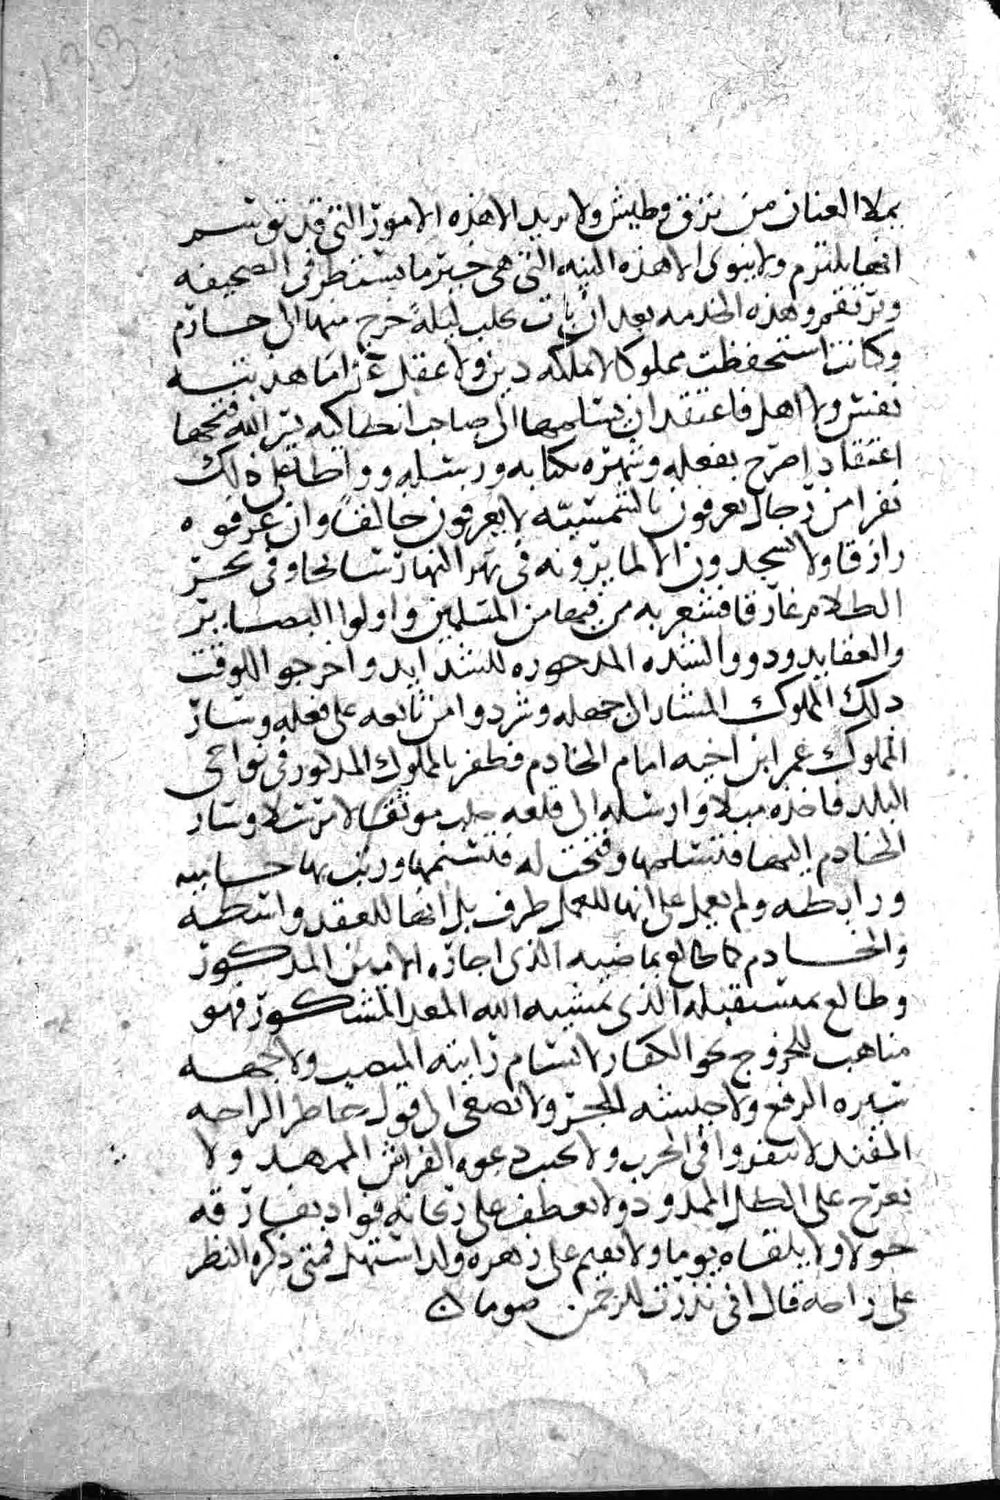 يملا العنان من نزق وطيش ولا يريد الا هذه الامور التي قد توسم
انها يلتزم ولا ينوى الا هذه النيه التي هي خير ما يستطر في الصحيفه
ويرتقم وهذه الخدمه بعد ان بات بحلب ليلةً خرج منها الى حارم
وكانت استحفظت مملوكا لا يملكه دين ولا عقل غرا ما هذبته
نفس ولا اهل فاعتقد ان يسلمها الى صاحب انطاكيه يسر الله فتحها
اعتقادا صرح بفعله وشهره بكتابه ورسله وواطا على ذلك
نفرا من رجال يعرفون بالشمسيه لا يعرفون خالقا وان عرفوه
رازقا ولا يسجدون الا لما يرونه في نهر النهار سابحا وفي بحر
الظلام غارقا فشعر به من فيها من المسلمين واولوا البصاير
والعقايد وذووا الشده المدخوره للشدايد واخرجوا للوقت
ذلك المملوك المشار الى جهله وشردوا من تابعه على فعله وسار
المملوك عمر ابن اخيه امام الخادم فظفر بالمملوك المذكور في نواحي
البلد فاخذه مبلا وارسله الى قلعه حلب موثقا لا مرسلا وسار
الخادم اليها فتسلمها وفتحت له فتسنمها ورتب بها حاميه
ورابطه ولم يعمل على انها للعمل طرف بل انها للعقد واسطه
والخادم كما طالع بماضيه الذي احازه الامس المذكور
وطالع بمستقبله الذي يمشيه الله المعد المشكور فهو
متاهب للخروج نحو الكفار لا تسام رايته النصب ولا جهه
سيره الرفع ولا جيشه الجر ولا يصغى الى قول خاطر الراحه
المفند لا تنفروا في الحرب ولا يجيب دعوه الفراش الممهد ولا
يعرج على الظل الممدود ولا يعطف على ريحانه فواد يفارقه
حولا ولا يلقاه يوما ولا يقيم على زهره ولد استهل فمتى ذكره النظر
على راحه قال اني نذرت للرحمن صوما